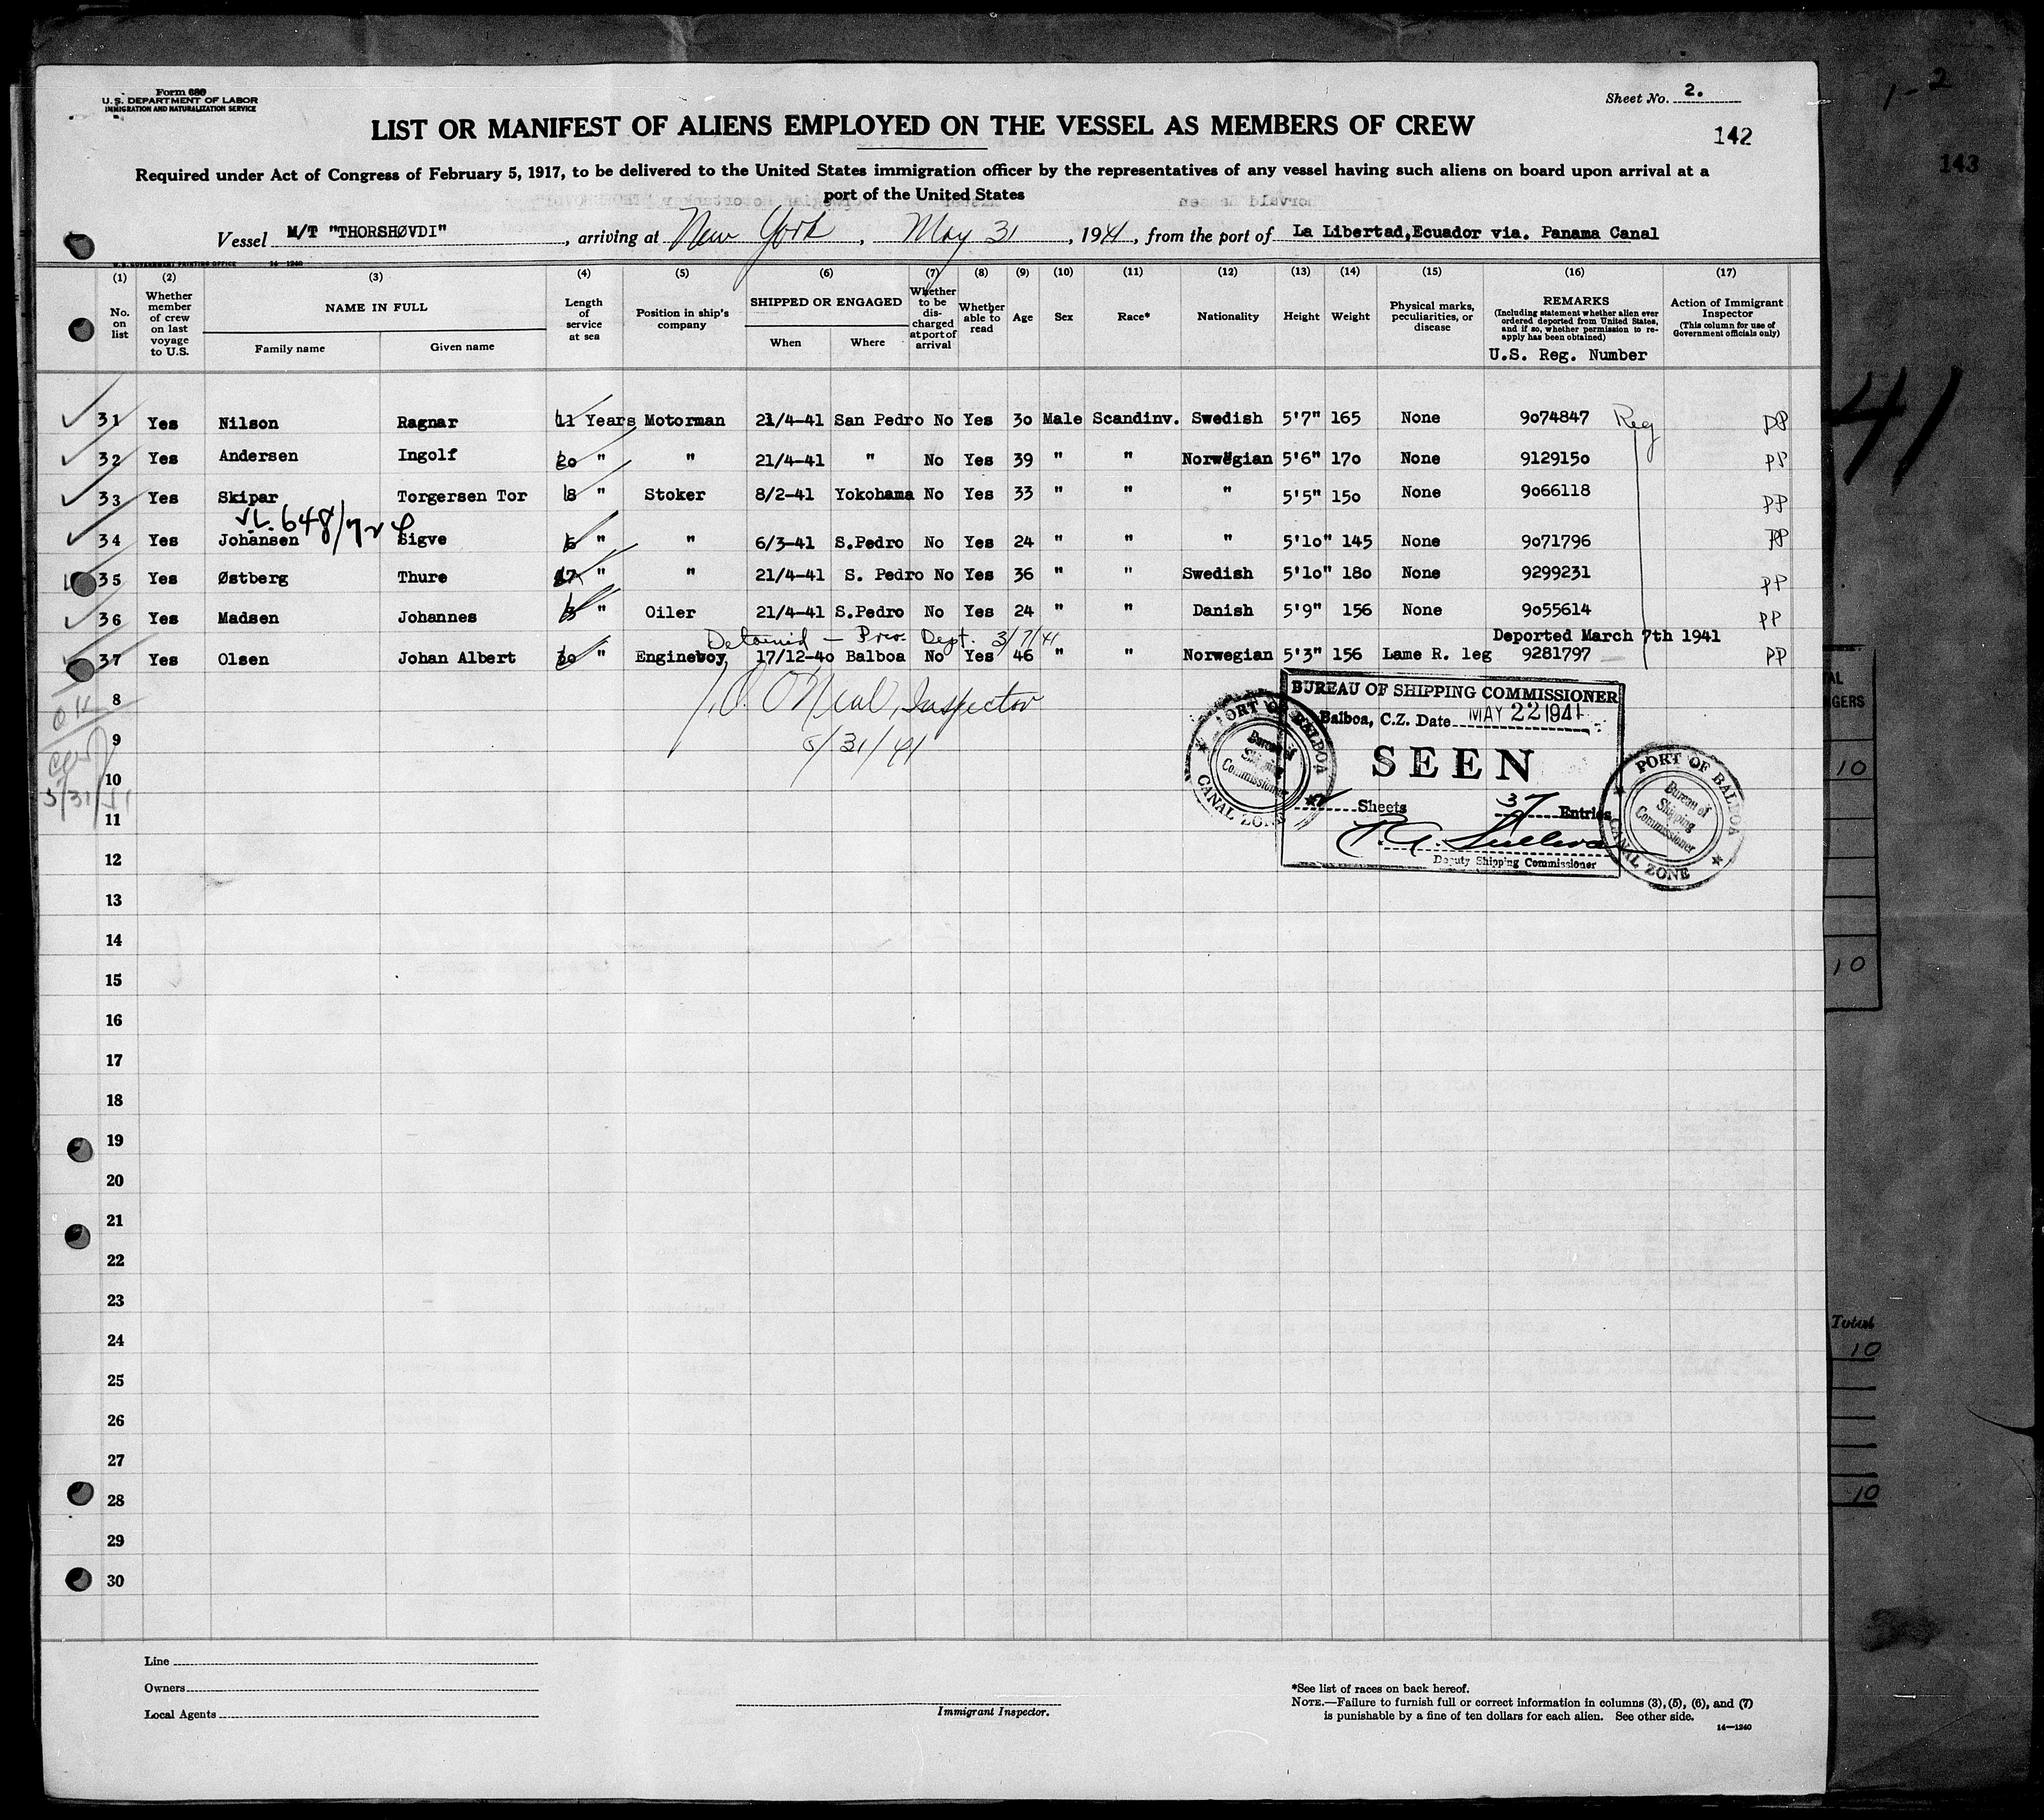 Form 680
U. S. DEPARTMENT OF LABOR
IMMIGRATION AND NATURALIZATION SERVICE
Sheet No. 2.
1-2
LIST OR MANIFEST OF ALIENS EMPLOYED ON THE VESSEL AS MEMBERS OF CREW
142
143
Required under Act of Congress of February 5, 1917, to be delivered to the United States immigration officer by the representatives of any vessel having such aliens on board upon arrival at a
port of the United States
Vessel M/T "THORSHØVDI", arriving at New York, May 31, 1941, from the port of La Libertad,Ecuador via. Panama Canal
U. S. GOVERNMENT PRINTING OFFICE 14-1240
(1) (2) (3) (4) (5) (6) (7) (8) (9) (10) (11) (12) (13) (14) (15) (16) (17)
No. on list
Whether member of crew on last voyage to U.S.
NAME IN FULL
Family name
Given name
Length of service at sea
Position in ship's company
SHIPPED OR ENGAGED
When
Where
Whether to be discharged at port of arrival
Whether able to read
Age
Sex
Race*
Nationality
Height
Weight
Physical marks, peculiarities, or disease
REMARKS
(Including statement whether alien ever ordered deported from United States, and if so, whether permission to re-apply has been obtained)
U.S. Reg. Number
Action of Immigrant Inspector
(This column for use of Government officials only)
31 Yes Nilson Ragnar 11 Years Motorman 21/4-41 San Pedro No Yes 30 Male Scandinv. Swedish 5'7" 165 None 9074847 Reg PP
32 Yes Andersen Ingolf 20 " " 21/4-41 " No Yes 39 " " Norwegian 5'6" 170 None 9129150 PP
33 Yes Skipar Torgersen Tor 8 " Stoker 8/2-41 Yokohama No Yes 33 " " " 5'5" 150 None 9066118 PP
VL. 648/72
34 Yes Johansen Sigve 6 " " 6/3-41 S.Pedro No Yes 24 " " " 5'10" 145 None 9071796 PP
35 Yes Østberg Thure 17 " " 21/4-41 S. Pedro No Yes 36 " " Swedish 5'10" 180 None 9299231 PP
36 Yes Madsen Johannes 3 " Oiler 21/4-41 S.Pedro No Yes 24 " " Danish 5'9" 156 None 9055614 PP
Detained — Prev. Dept. 3/7/41
Deported March 7th 1941
37 Yes Olsen Johan Albert 30 " Engineboy 17/12-40 Balboa No Yes 46 " " Norwegian 5'3" 156 Lame R. leg 9281797 PP
O'Neal, Inspector
5/31/41
OK
5/31/41
BUREAU OF SHIPPING COMMISSIONER
Balboa, C.Z. Date MAY 22 1941
SEEN
2 Sheets 37 Entries
P. A. Sullivan
Deputy Shipping Commissioner
PORT OF BALBOA
Bureau of Shipping Commissioner
CANAL ZONE
PORT OF BALBOA
Bureau of Shipping Commissioner
CANAL ZONE
8
9
10
11
12
13
14
15
16
17
18
19
20
21
22
23
24
25
26
27
28
29
30
41
10
10
Total
10
10
Line
Owners
Local Agents
Immigrant Inspector.
*See list of races on back hereof.
NOTE.—Failure to furnish full or correct information in columns (3), (5), (6), and (7)
is punishable by a fine of ten dollars for each alien. See other side.
14—1240